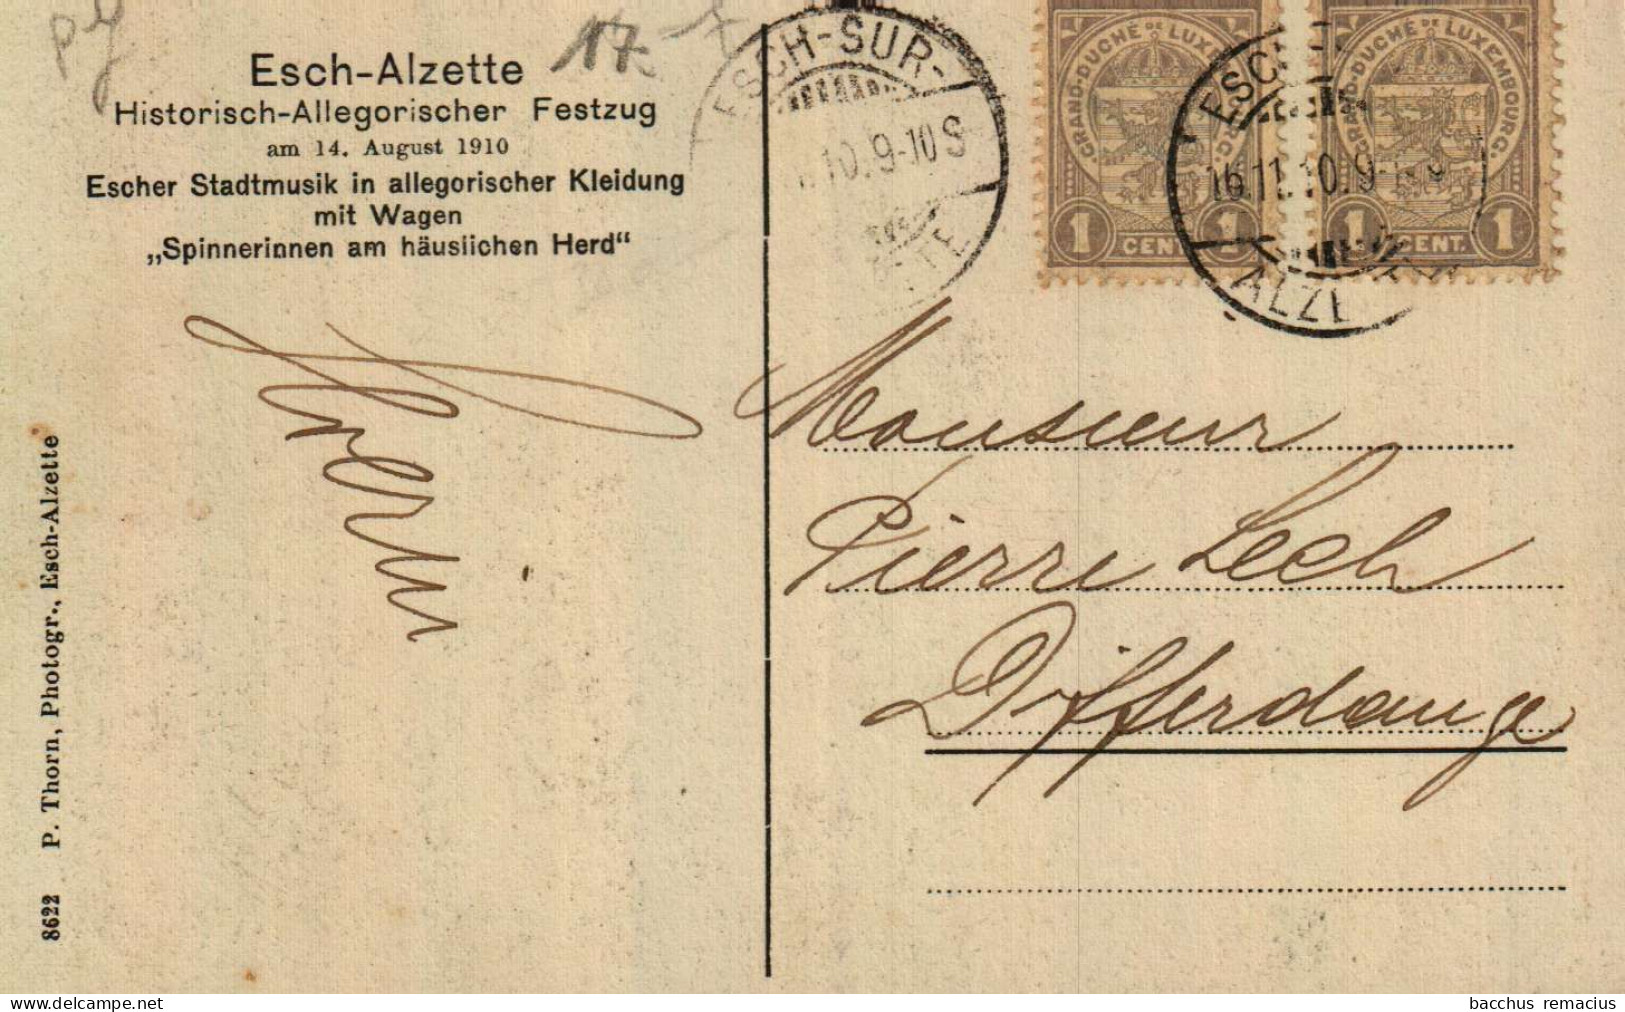 17-
Esch-Alzette
Historisch-Allegorischer Festzug
am 14. August 1910
Escher Stadtmusik in allegorischer Kleidung
mit Wagen
„Spinnerinnen am häuslichen Herd“
ESCH-SUR-
10.9-10S
GRAND-DUCHÉ DE LUX
RG.
1 CENT 1
GRAND-DUCHÉ DE LUXEMBOURG.
1 CENT. 1
ESCH
16.11.10.9-
ALZE
Monsieur
Pierre Lech
Differdange
8622 P. Thorn, Photogr., Esch-Alzette
www.delcampe.net
bacchus remacius